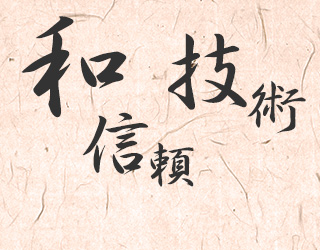 和 技術
信頼